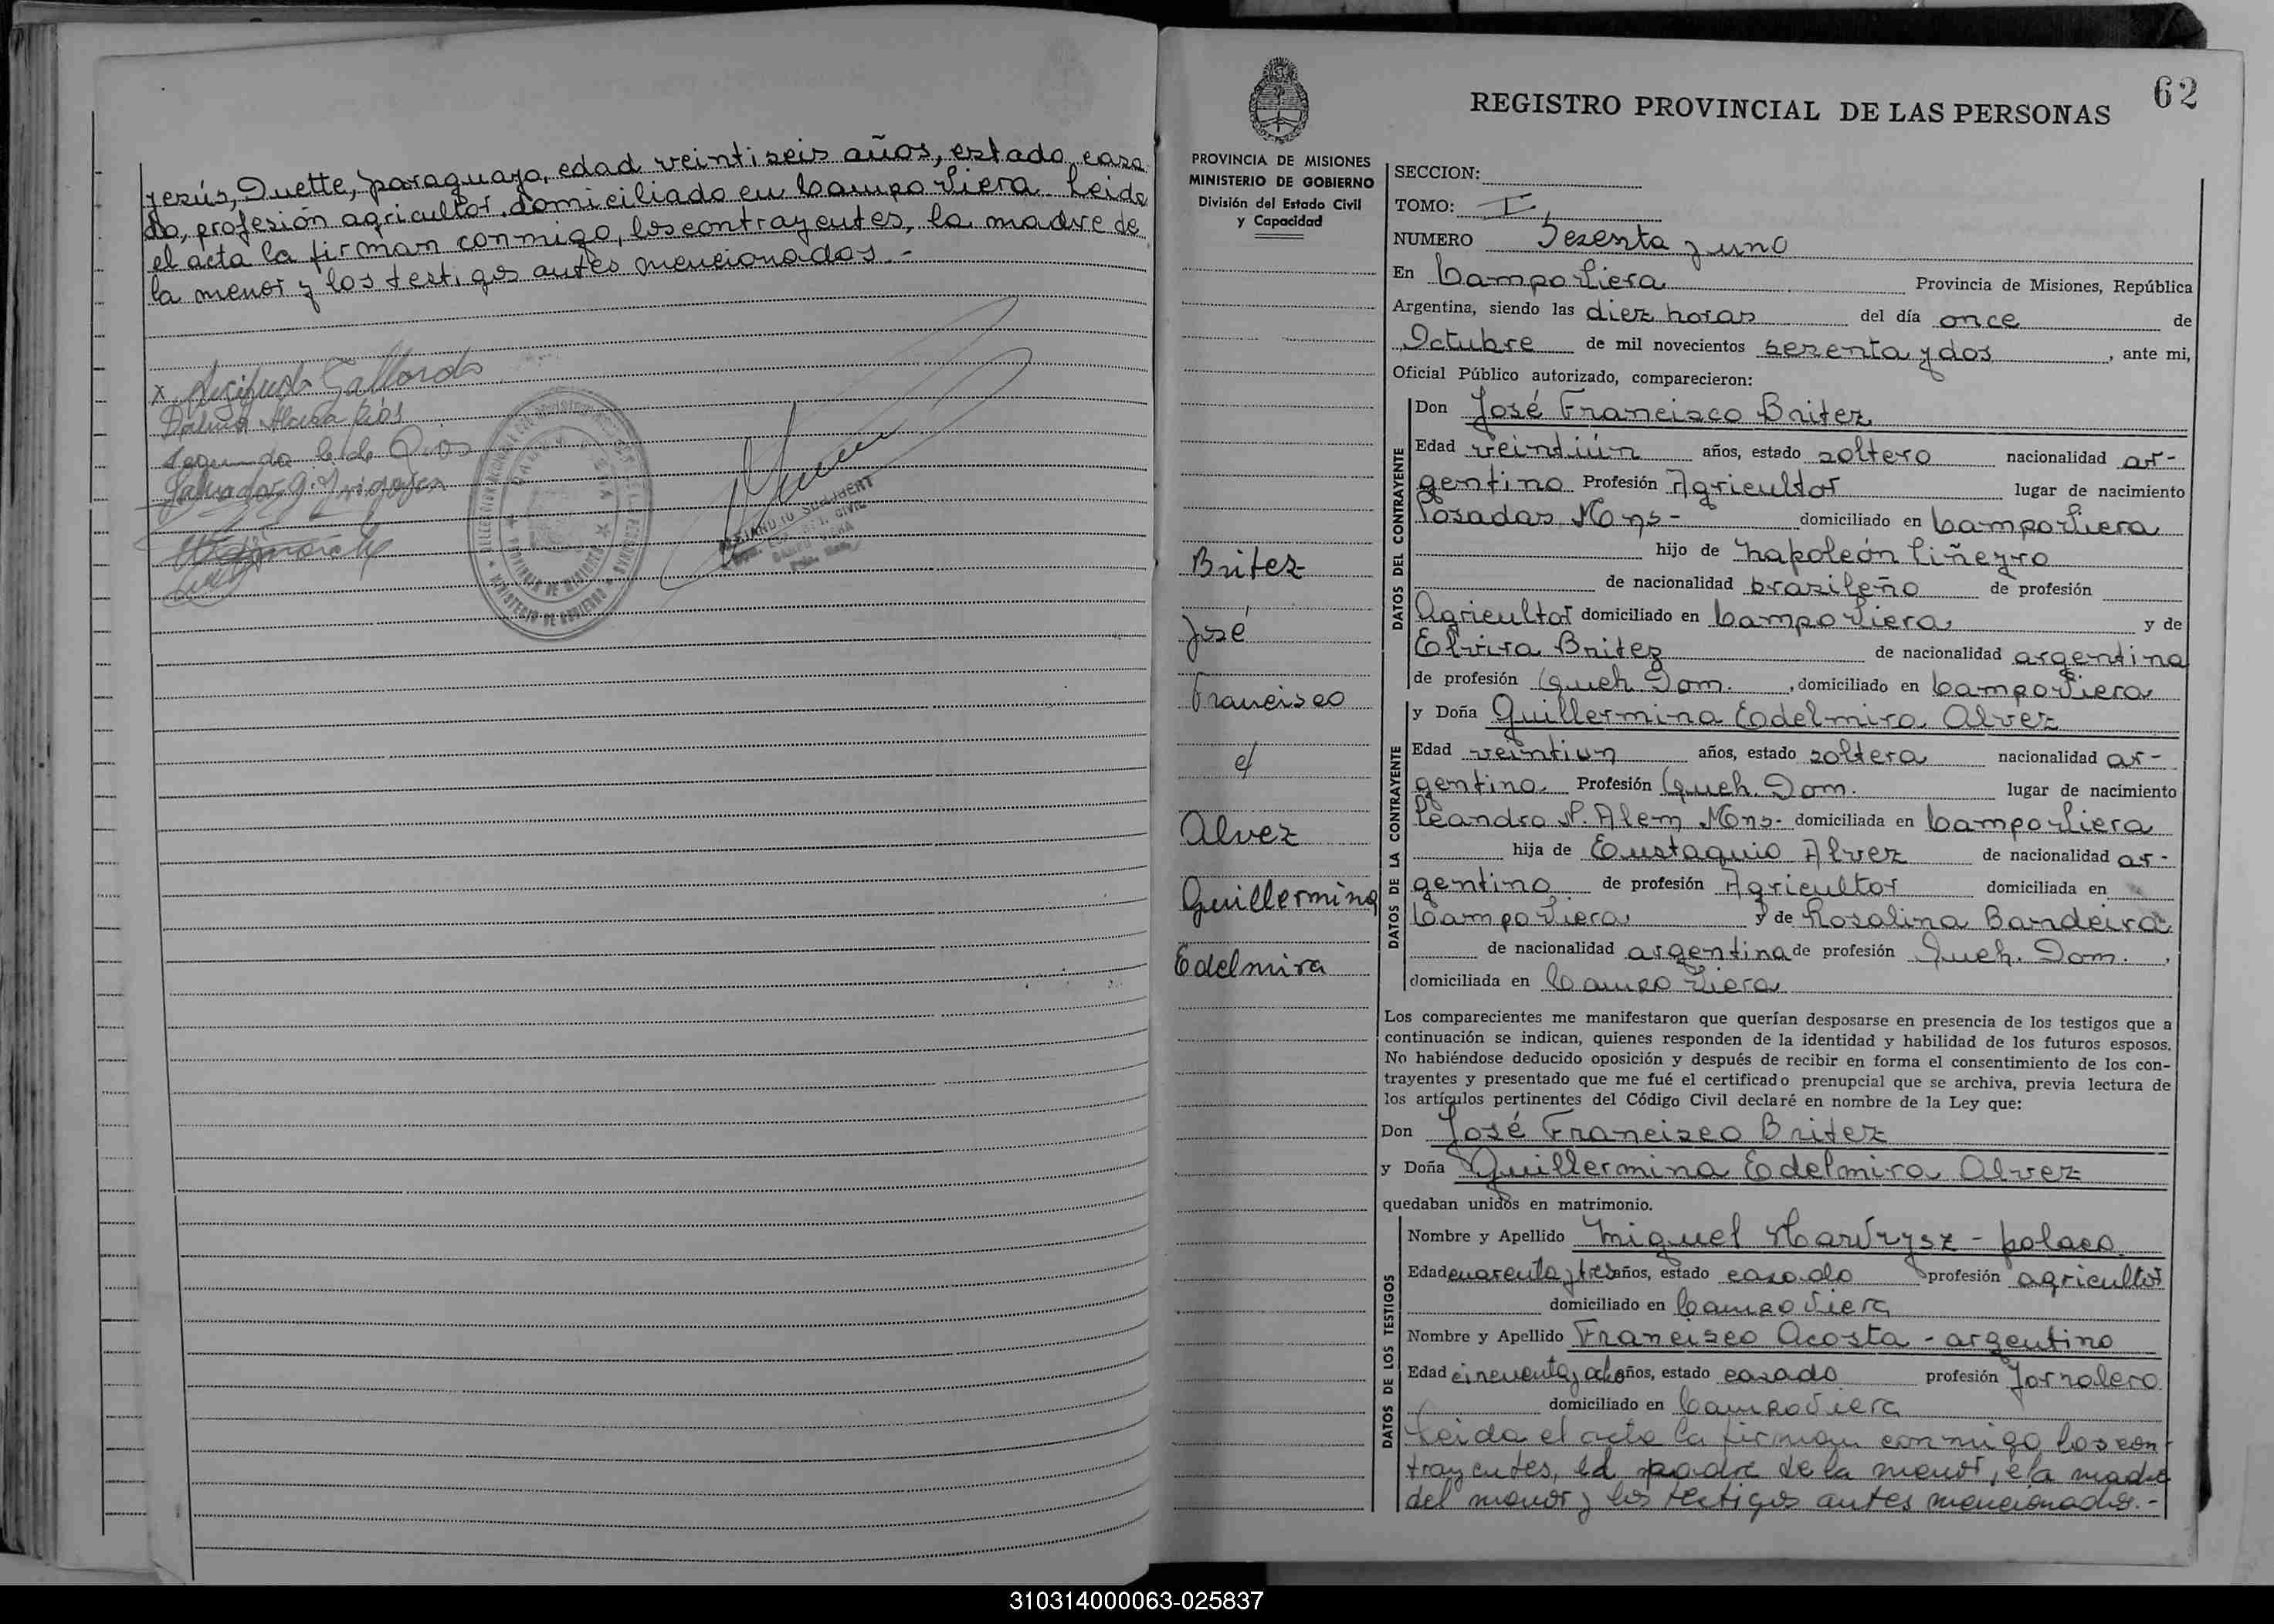 Jesús, Duette, paraguayo, edad veintiseis años, estado casa
do, profesión agricultor, domiciliado en Campo Viera. Leida
el acta la firman conmigo, los contrayentes, la madre de
la menor y los testigos antes mencionados.-
x Gallardo
Segunda C. de Rios
Salvador G. Irigoyen
ALEJANDRO
CIVIL
MINISTERIO DE GOBIERNO
PROVINCIA DE MISIONES
62
REGISTRO PROVINCIAL DE LAS PERSONAS
PROVINCIA DE MISIONES
MINISTERIO DE GOBIERNO
División del Estado Civil
y Capacidad
Britez
José
Francisco
c/
Alvez
Guillermina
Edelmira
SECCION:
TOMO: I,
NUMERO Sesenta y uno
En Campo Viera Provincia de Misiones, República
Argentina, siendo las diez horas del día once de
Octubre de mil novecientos sesenta y dos, ante mi,
Oficial Público autorizado, comparecieron:
DATOS DEL CONTRAYENTE
Don José Francisco Britez
Edad veintiún años, estado soltero nacionalidad ar-
gentino Profesión Agricultor lugar de nacimiento
Posadas Mons- domiciliado en Campo Viera
hijo de Napoleón Piñeyro
de nacionalidad brasileño de profesión
Agricultor domiciliado en Campo Viera, y de
Elvira Britez de nacionalidad argentina
de profesión Queh. Dom. , domiciliado en Campo Viera
DATOS DE LA CONTRAYENTE
y Doña Guillermina Edelmira Alvez
Edad veintiun años, estado soltera nacionalidad ar-
gentina Profesión Queh. Dom. lugar de nacimiento
Leandro N. Alem Mons- domiciliada en Campo Viera
hija de Eustaquio Alvez de nacionalidad ar-
gentino de profesión Agricultor domiciliada en
Campo Viera y de Rosalina Bandeira
de nacionalidad argentina de profesión Queh. Dom. ,
domiciliada en Campo Viera
Los comparecientes me manifestaron que querían desposarse en presencia de los testigos que a
continuación se indican, quienes responden de la identidad y habilidad de los futuros esposos.
No habiéndose deducido oposición y después de recibir en forma el consentimiento de los con-
trayentes y presentado que me fué el certificado prenupcial que se archiva, previa lectura de
los artículos pertinentes del Código Civil declaré en nombre de la Ley que:
Don José Francisco Britez
y Doña Guillermina Edelmira Alvez
quedaban unidos en matrimonio.
DATOS DE LOS TESTIGOS
Nombre y Apellido Miguel - polaco
Edad cuarenta y tres años, estado casado profesión agricultor
domiciliado en Campo Viera
Nombre y Apellido Francisco Acosta - argentino
Edad cincuenta y ocho años, estado casado profesión Jornalero
domiciliado en Campo Viera
Leida el acta la firman conmigo los con
trayentes, el padre de la menor, e la madre
del menor y los testigos antes mencionados.-
310314000063-025837